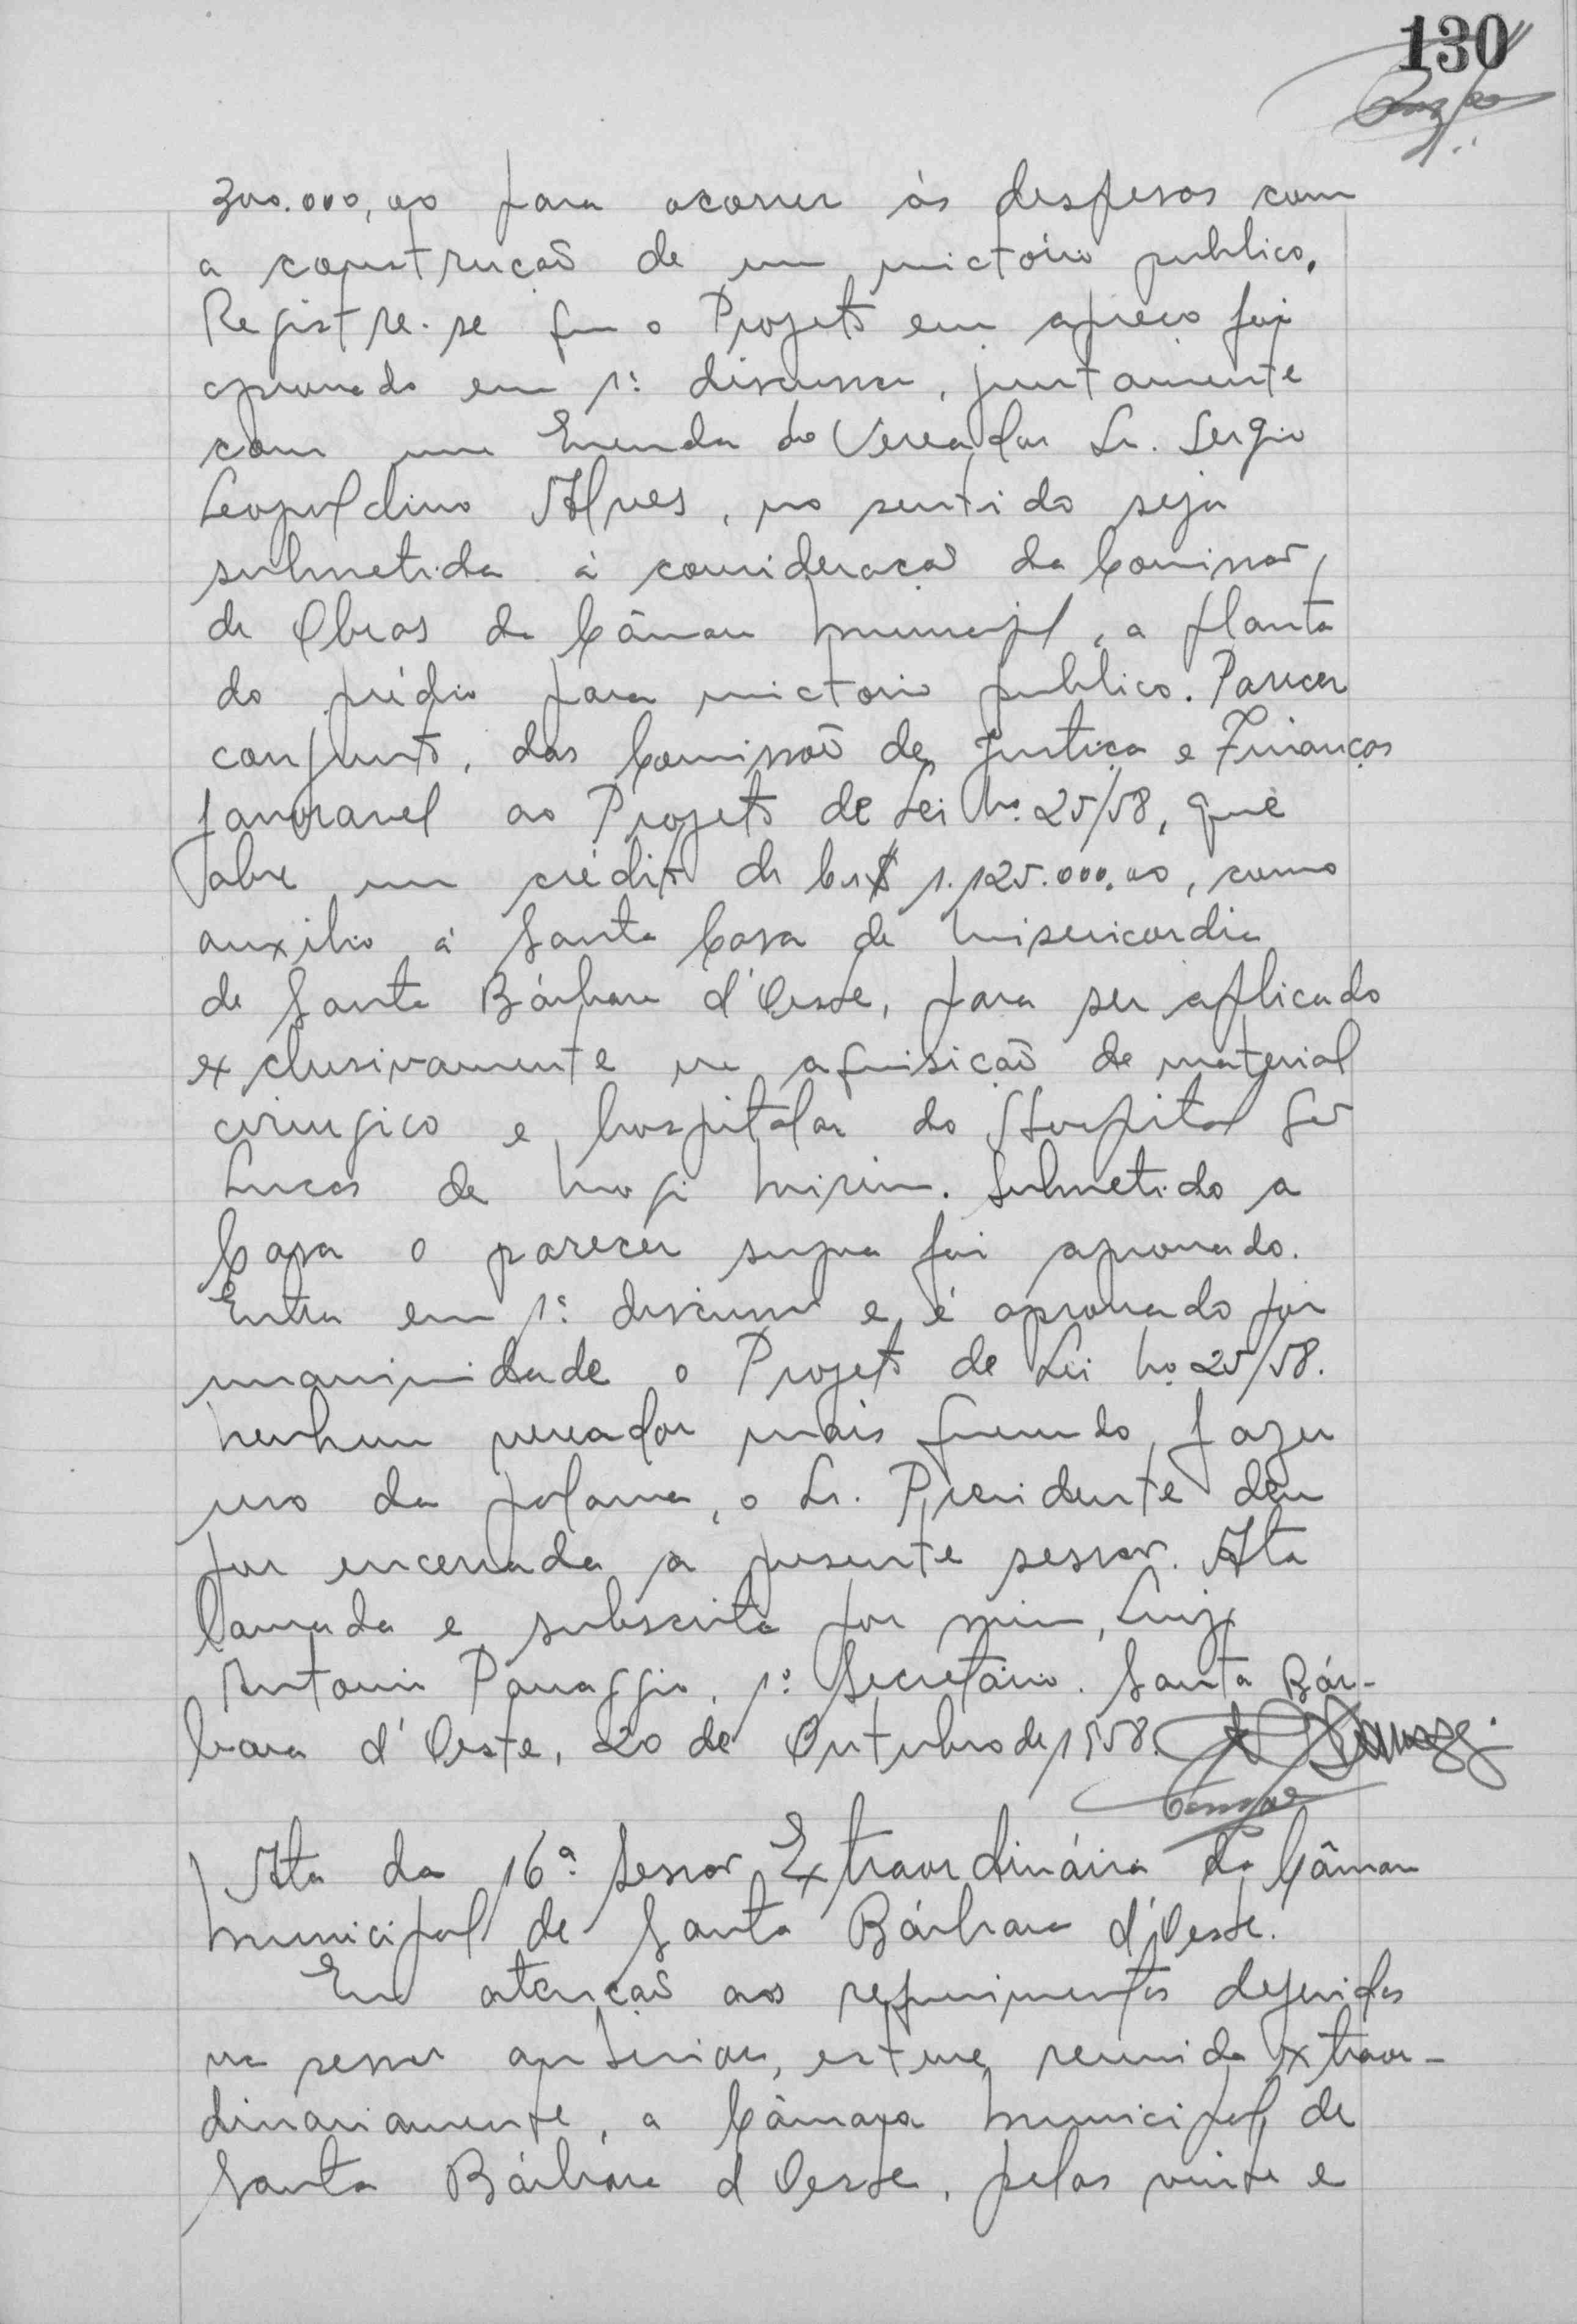 130
300.000,00 para ocorrer às despesas com
a construção de um mictório publico.
Registre-se que o Projeto em apreço foi
aprovado em 1ª discussão, juntamente
com uma Emenda do Vereador Sr. Sergio
Leopoldino Alves, no sentido seja
submetida à consideração da Comissão
de Obras da Câmara Municipal, a planta
do prédio para mictorio publico. Parecer
conjunto, das Comissão de Justiça e Finanças
favoravel ao Projeto de Lei No. 25/58, que
abre um crédito de Cr$ 1.125.000,00, como
auxilio à Santa Casa de Misericordia
de Santa Bárbara d'Oeste, para ser aplicado
exclusivamente na aquisição de material
cirurgico e hospitalar do Hospital São
Lucas de Mogi Mirim. Submetido a
Casa o parecer supra foi aprovado.
Entra em 1ª discussão e é aprovado por
unanimidade o Projeto de Lei No. 25/58.
Nenhum vereador mais querendo fazer
uso da palavra, o Sr. Presidente deu
por encerrada a presente sessão. Ata
lavrada e subscrita por mim, Luiz
Antonio Panaggio, 1º Secretário. Santa Bár-
bara d'Oeste, 20 de Outubro de 1958.
Ata da 16ª Sessão Extraordinária da Câmara
Municipal de Santa Bárbara d'Oeste.
Em atenção aos requerimentos deferidos
na sessão anterior, esteve reunida extraor-
dinariamente, a Câmara Municipal de
Santa Bárbara d'Oeste, pelas vinte e